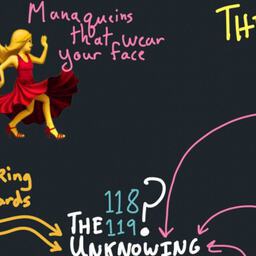 Manaqueins
that wear
your face
TH
Ring
ards
118
119
?
THE
UNKNOWING